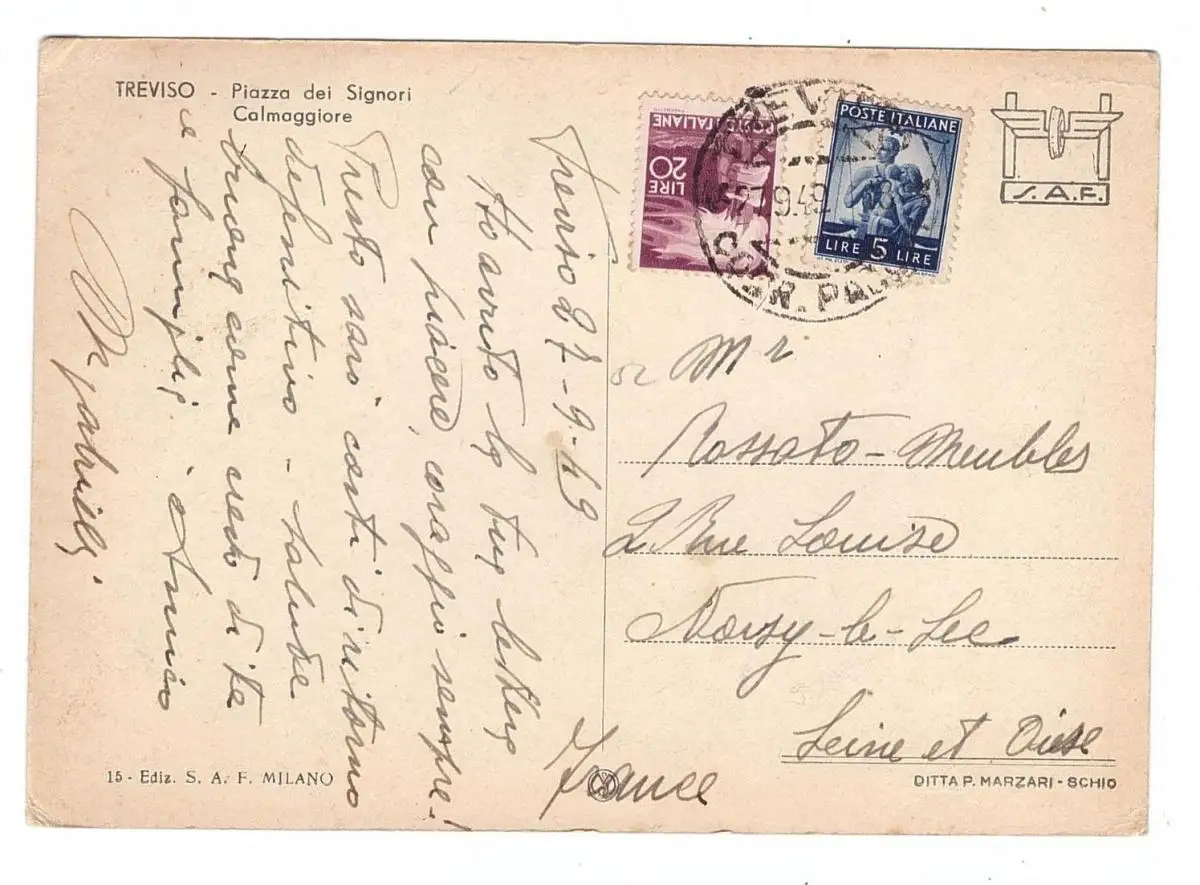 TREVISO - Piazza dei Signori
Calmaggiore
POSTE ITALIANE
LIRE 20
POSTE ITALIANE
LIRE 5 LIRE
27.9.49
COR. PA
S.A.F.
Treviso 27-9-49
Ho avuto la tua lettera
con piacere, coraggio sempre!
Presto sarò costì di ritorno
definitivo - saluta
come credo di te
e famiglia. Amico
Mr
Rossato-Meubles
2 Rue Louise
Noisy-le-Sec
Seine et Oise
France
15 - Ediz. S. A. F. MILANO
DITTA P. MARZARI - SCHIO